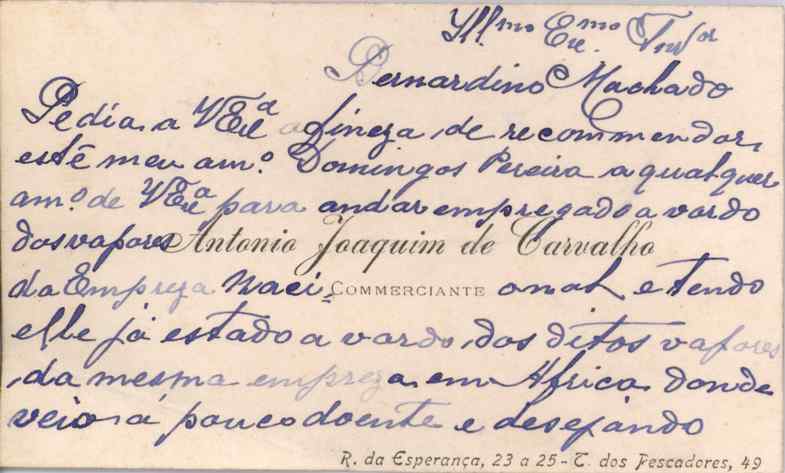 Yll.mo Exe.mo Snr
Bernardino Machado
Pedia a VExe.a a fineza de recommendar,
este meu am.o Domingos Pereira a qualquer
am.o de VExe.a para andar empregado a vordo
dos vapores Antonio Joaquim de Carvalho
da Empreza Naci- COMMERCIANTE onal e tendo
elle já estado a vordo dos ditos vapores
da mesma empreza em Africa donde
veio á pouco doente e desejando
R. da Esperança, 23 a 25 - T. dos Pescadores, 49